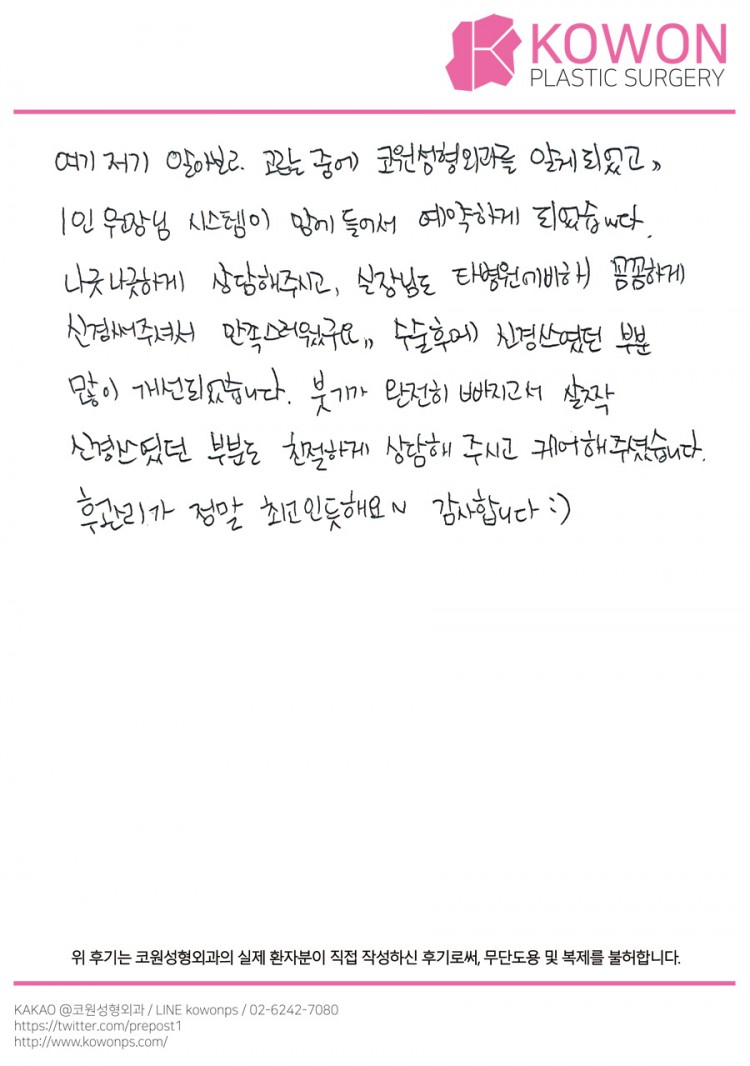 KOWON
PLASTIC SURGERY
여기 저기 알아보고 고르는 중에 코원성형외과를 알게 되었고,,
1인 원장님 시스템이 맘에 들어서 예약하게 되었습니다.
나긋나긋하게 상담해주시고, 실장님도 타병원에비해 꼼꼼하게
신경써주셔서 만족스러웠구요,, 수술후에 신경쓰였던 부분
많이 개선되었습니다. 붓기가 완전히 빠지고서 살짝
신경쓰였던 부분도 친절하게 상담해 주시고 케어해주셨습니다.
후관리가 정말 최고인듯해요~ 감사합니다 :)
위 후기는 코원성형외과의 실제 환자분이 직접 작성하신 후기로써, 무단도용 및 복제를 불허합니다.
KAKAO @코원성형외과 / LINE kowonps / 02-6242-7080
https://twitter.com/prepost1
http://www.kowonps.com/